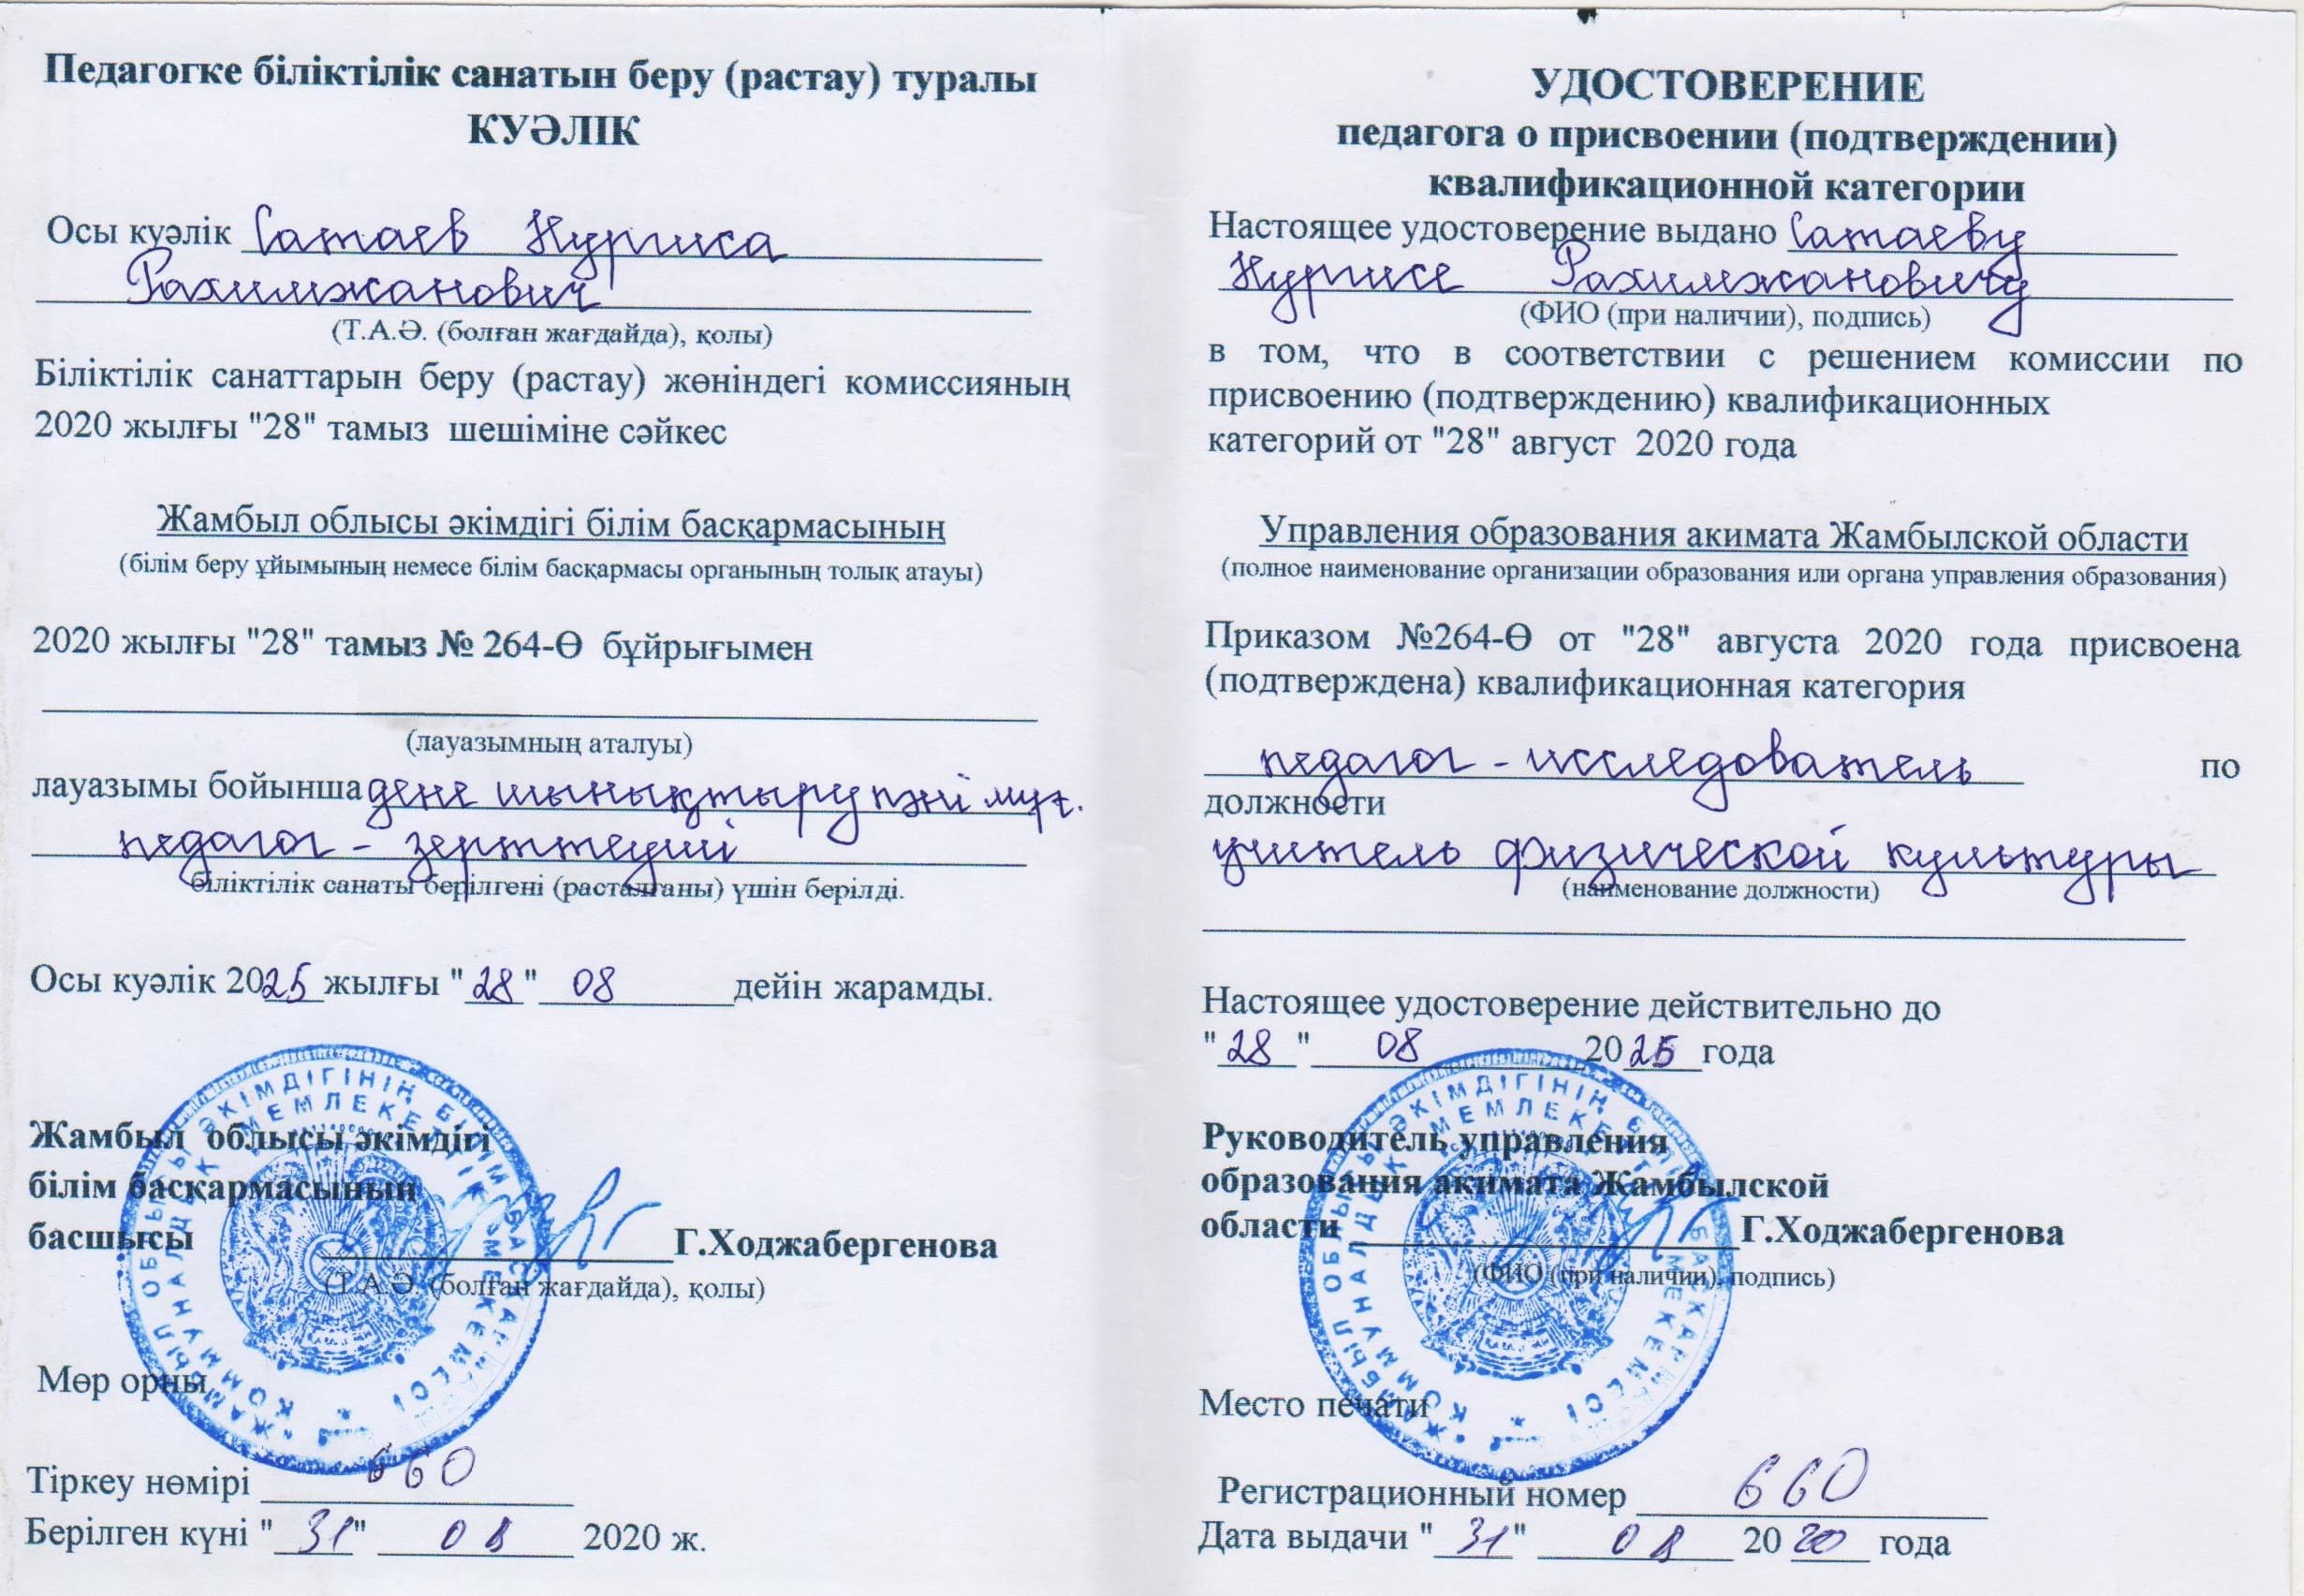 Педагогке біліктілік санатын беру (растау) туралы
КУӘЛІК
Осы куәлік Сатаев Нуриса
Рахимжанович
(Т.А.Ә. (болған жағдайда), қолы)
Біліктілік санаттарын беру (растау) жөніндегі комиссияның
2020 жылғы "28" тамыз шешіміне сәйкес
Жамбыл облысы әкімдігі білім басқармасының
(білім беру ұйымының немесе білім басқармасы органының толық атауы)
2020 жылғы "28" тамыз № 264-Ө бұйрығымен
(лауазымның аталуы)
лауазымы бойынша дене шынықтыру пәні мұғ.
педагог - зерттеуші
біліктілік санаты берілгені (расталғаны) үшін берілді.
Осы куәлік 2025 жылғы "28" 08 дейін жарамды.
Жамбыл облысы әкімдігі
білім басқармасының
басшысы Г.Ходжабергенова
(Т.А.Ә. (болған жағдайда), қолы)
Мөр орны
Тіркеу нөмірі 660
Берілген күні "31" 08 2020 ж.
УДОСТОВЕРЕНИЕ
педагога о присвоении (подтверждении)
квалификационной категории
Настоящее удостоверение выдано Сатаеву
Нурисе Рахимжановичу
(ФИО (при наличии), подпись)
в том, что в соответствии с решением комиссии по
присвоению (подтверждению) квалификационных
категорий от "28" август 2020 года
Управления образования акимата Жамбылской области
(полное наименование организации образования или органа управления образования)
Приказом №264-Ө от "28" августа 2020 года присвоена
(подтверждена) квалификационная категория
педагог - исследователь по
должности
учитель физической культуры
(наименование должности)
Настоящее удостоверение действительно до
"28" 08 2025 года
Руководитель управления
образования акимата Жамбылской
области Г.Ходжабергенова
(ФИО (при наличии), подпись)
Место печати
Регистрационный номер 660
Дата выдачи "31" 08 2020 года